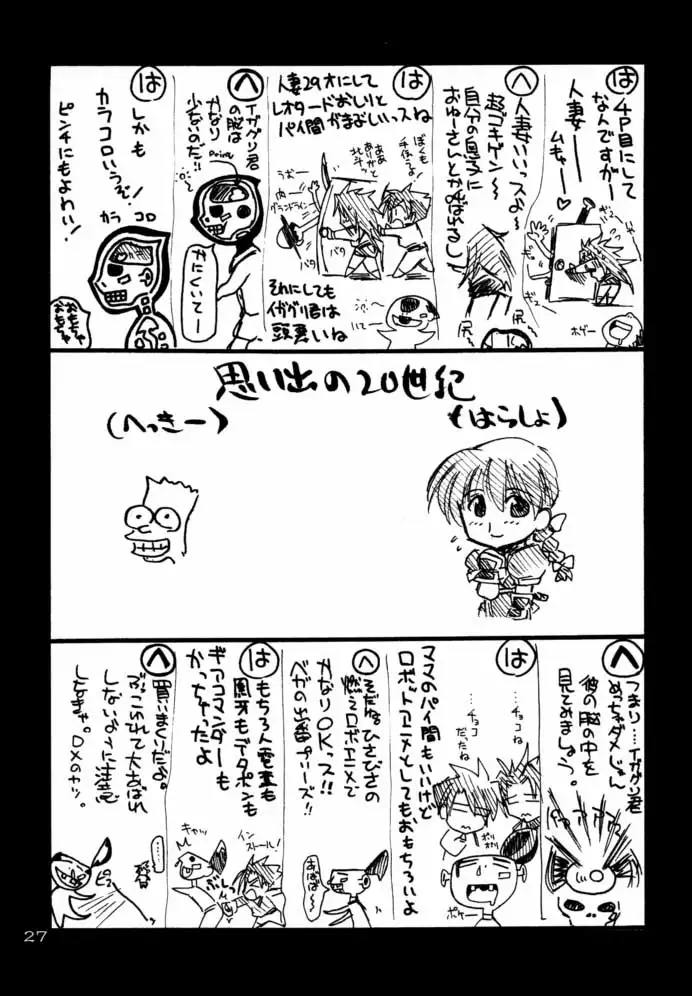 は
4P目にして
なんですがー
人妻ー!
ムキャー
ギュ
ボゲー
へ
人妻いいっスよ〜
超ゴキゲン〜
自分の息子に
おゆーさんとか呼ばれるし
尻〜
尻〜
は
人妻29才にして
レオタードおしりと
パイ間がまぶしいっスね
ぼくも
手伝うよ!
ああ
ありがと
北斗っ
うおー
グランドライン
バタ
バタ
それにしても
イガグリ君は
頭悪いね
へ
イガグリ君
の脳は
かなり
少ないのだ!!
Point
みにくいてー
は
しかも
カラコロいうぞ!
カラ コロ
ピンチにもよわい!
おもちゃ
おもちゃ
思い出の20世紀
(はらしょ)
(へっきー)
へ
つまり…イガグリ君
めっちゃダメじゃん
彼の脳の中を
見てみましょう。
ドアアアア
は
ママのパイ間もいいけど
ロボットアニメとしてもおもちろいよ
…チョコ
…ね
…チョコ
だったね
ポリ
ポリ
ポケー
へ
そだねひさびさの
燃えロボアニメで
かなりOKっス!!
ベガの出番プリーズ!!
あばば〜
は
もちろん電童も
凰牙もデータポンも
ギアコマンダーも
かっちゃったよ
キャッ
イン
ストール!
ぶんっ
へ
買いまくりだよ。
ぶっこわれて大ちばれ
しないように注意
しなきゃ。DXのヤツ。
……
ピュ
27